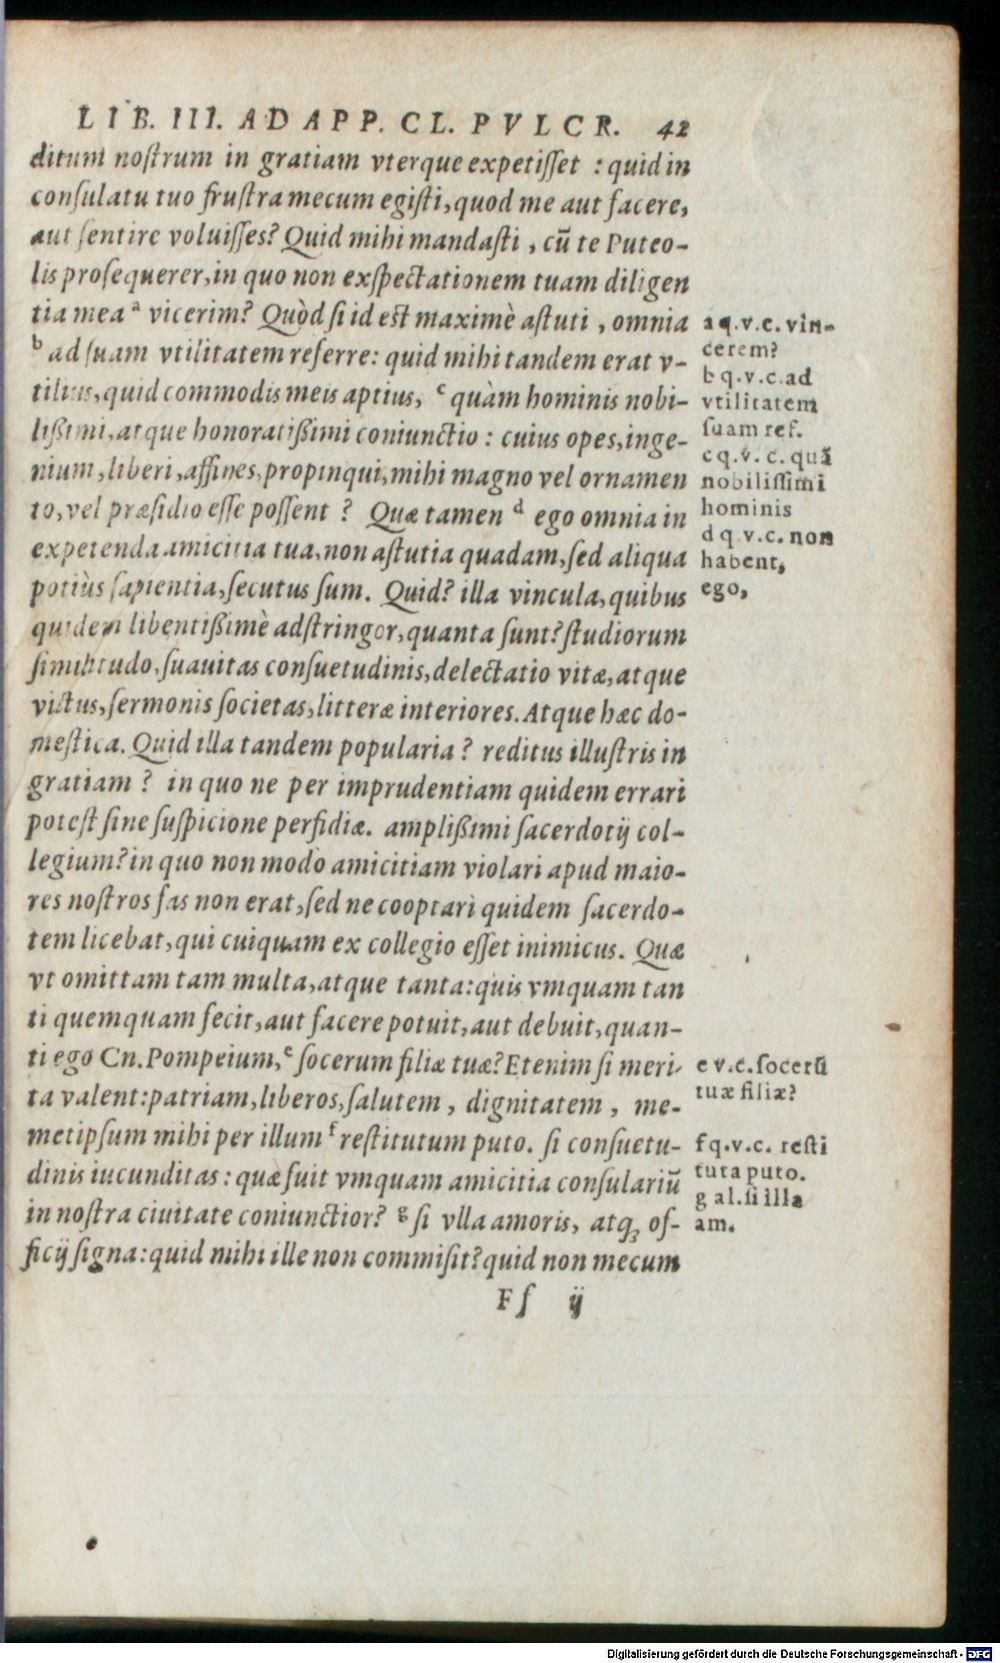 LIB. III. AD APP. CL. PVLCR. 42
ditum noſtrum in gratiam vterque expetiſſet : quid in
conſulatu tuo fruſtra mecum egiſti, quod me aut facere,
aut ſentire voluiſſes? Quid mihi mandaſti , cū te Puteo-
lis proſequerer, in quo non exſpectationem tuam diligen
tia mea ᵃ vicerim? Quòd ſi id eſt maximè aſtuti , omnia
ᵇ ad ſuam vtilitatem referre: quid mihi tandem erat v-
tilius, quid commodis meis aptius, ᶜ quàm hominis nobi-
lißimi, atque honoratißimi coniunctio : cuius opes, inge-
nium, liberi, affines, propinqui, mihi magno vel ornamen
to, vel præſidio eſſe poſſent ? Quæ tamen ᵈ ego omnia in
expetenda amicitia tua, non aſtutia quadam, ſed aliqua
potiùs ſapientia, ſecutus ſum. Quid? illa vincula, quibus
quidem libentißimè adſtringor, quanta ſunt? ſtudiorum
ſimilitudo, ſuauitas conſuetudinis, delectatio vitæ, atque
victus, ſermonis ſocietas, litteræ interiores. Atque hæc do-
meſtica. Quid illa tandem popularia ? reditus illuſtris in
gratiam ? in quo ne per imprudentiam quidem errari
poteſt ſine ſuſpicione perfidiæ. amplißimi ſacerdotij col-
legium? in quo non modo amicitiam violari apud maio-
res noſtros fas non erat, ſed ne cooptari quidem ſacerdo-
tem licebat, qui cuiquam ex collegio eſſet inimicus. Quæ
vt omittam tam multa, atque tanta: quis vmquam tan
ti quemquam fecit, aut facere potuit, aut debuit, quan-
ti ego Cn. Pompeium, ᵉ ſocerum filiæ tuæ? Etenim ſi meri-
ta valent: patriam, liberos, ſalutem , dignitatem , me-
metipſum mihi per illum ᶠ reſtitutum puto. ſi conſuetu-
dinis iucunditas : quæ fuit vmquam amicitia conſulariū
in noſtra ciuitate coniunctior? ᵍ ſi vlla amoris, atqꝫ of-
ficij ſigna: quid mihi ille non commiſit? quid non mecum
Ff ij
a q.v.c. vin-
cerem?
b q.v.c. ad
vtilitatem
ſuam ref.
c q.v.c. quā
nobiliſſimi
hominis
d q v.c. non
habent,
ego,
e v.c. ſocerū
tuæ filiæ?
f q.v.c. reſti
tuta puto.
g al. ſi illa
am.
Digitalisierung gefördert durch die Deutsche Forschungsgemeinschaft - DFG